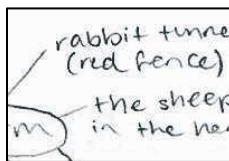 rabbit tunne
(red fence)
the sheep
m in the